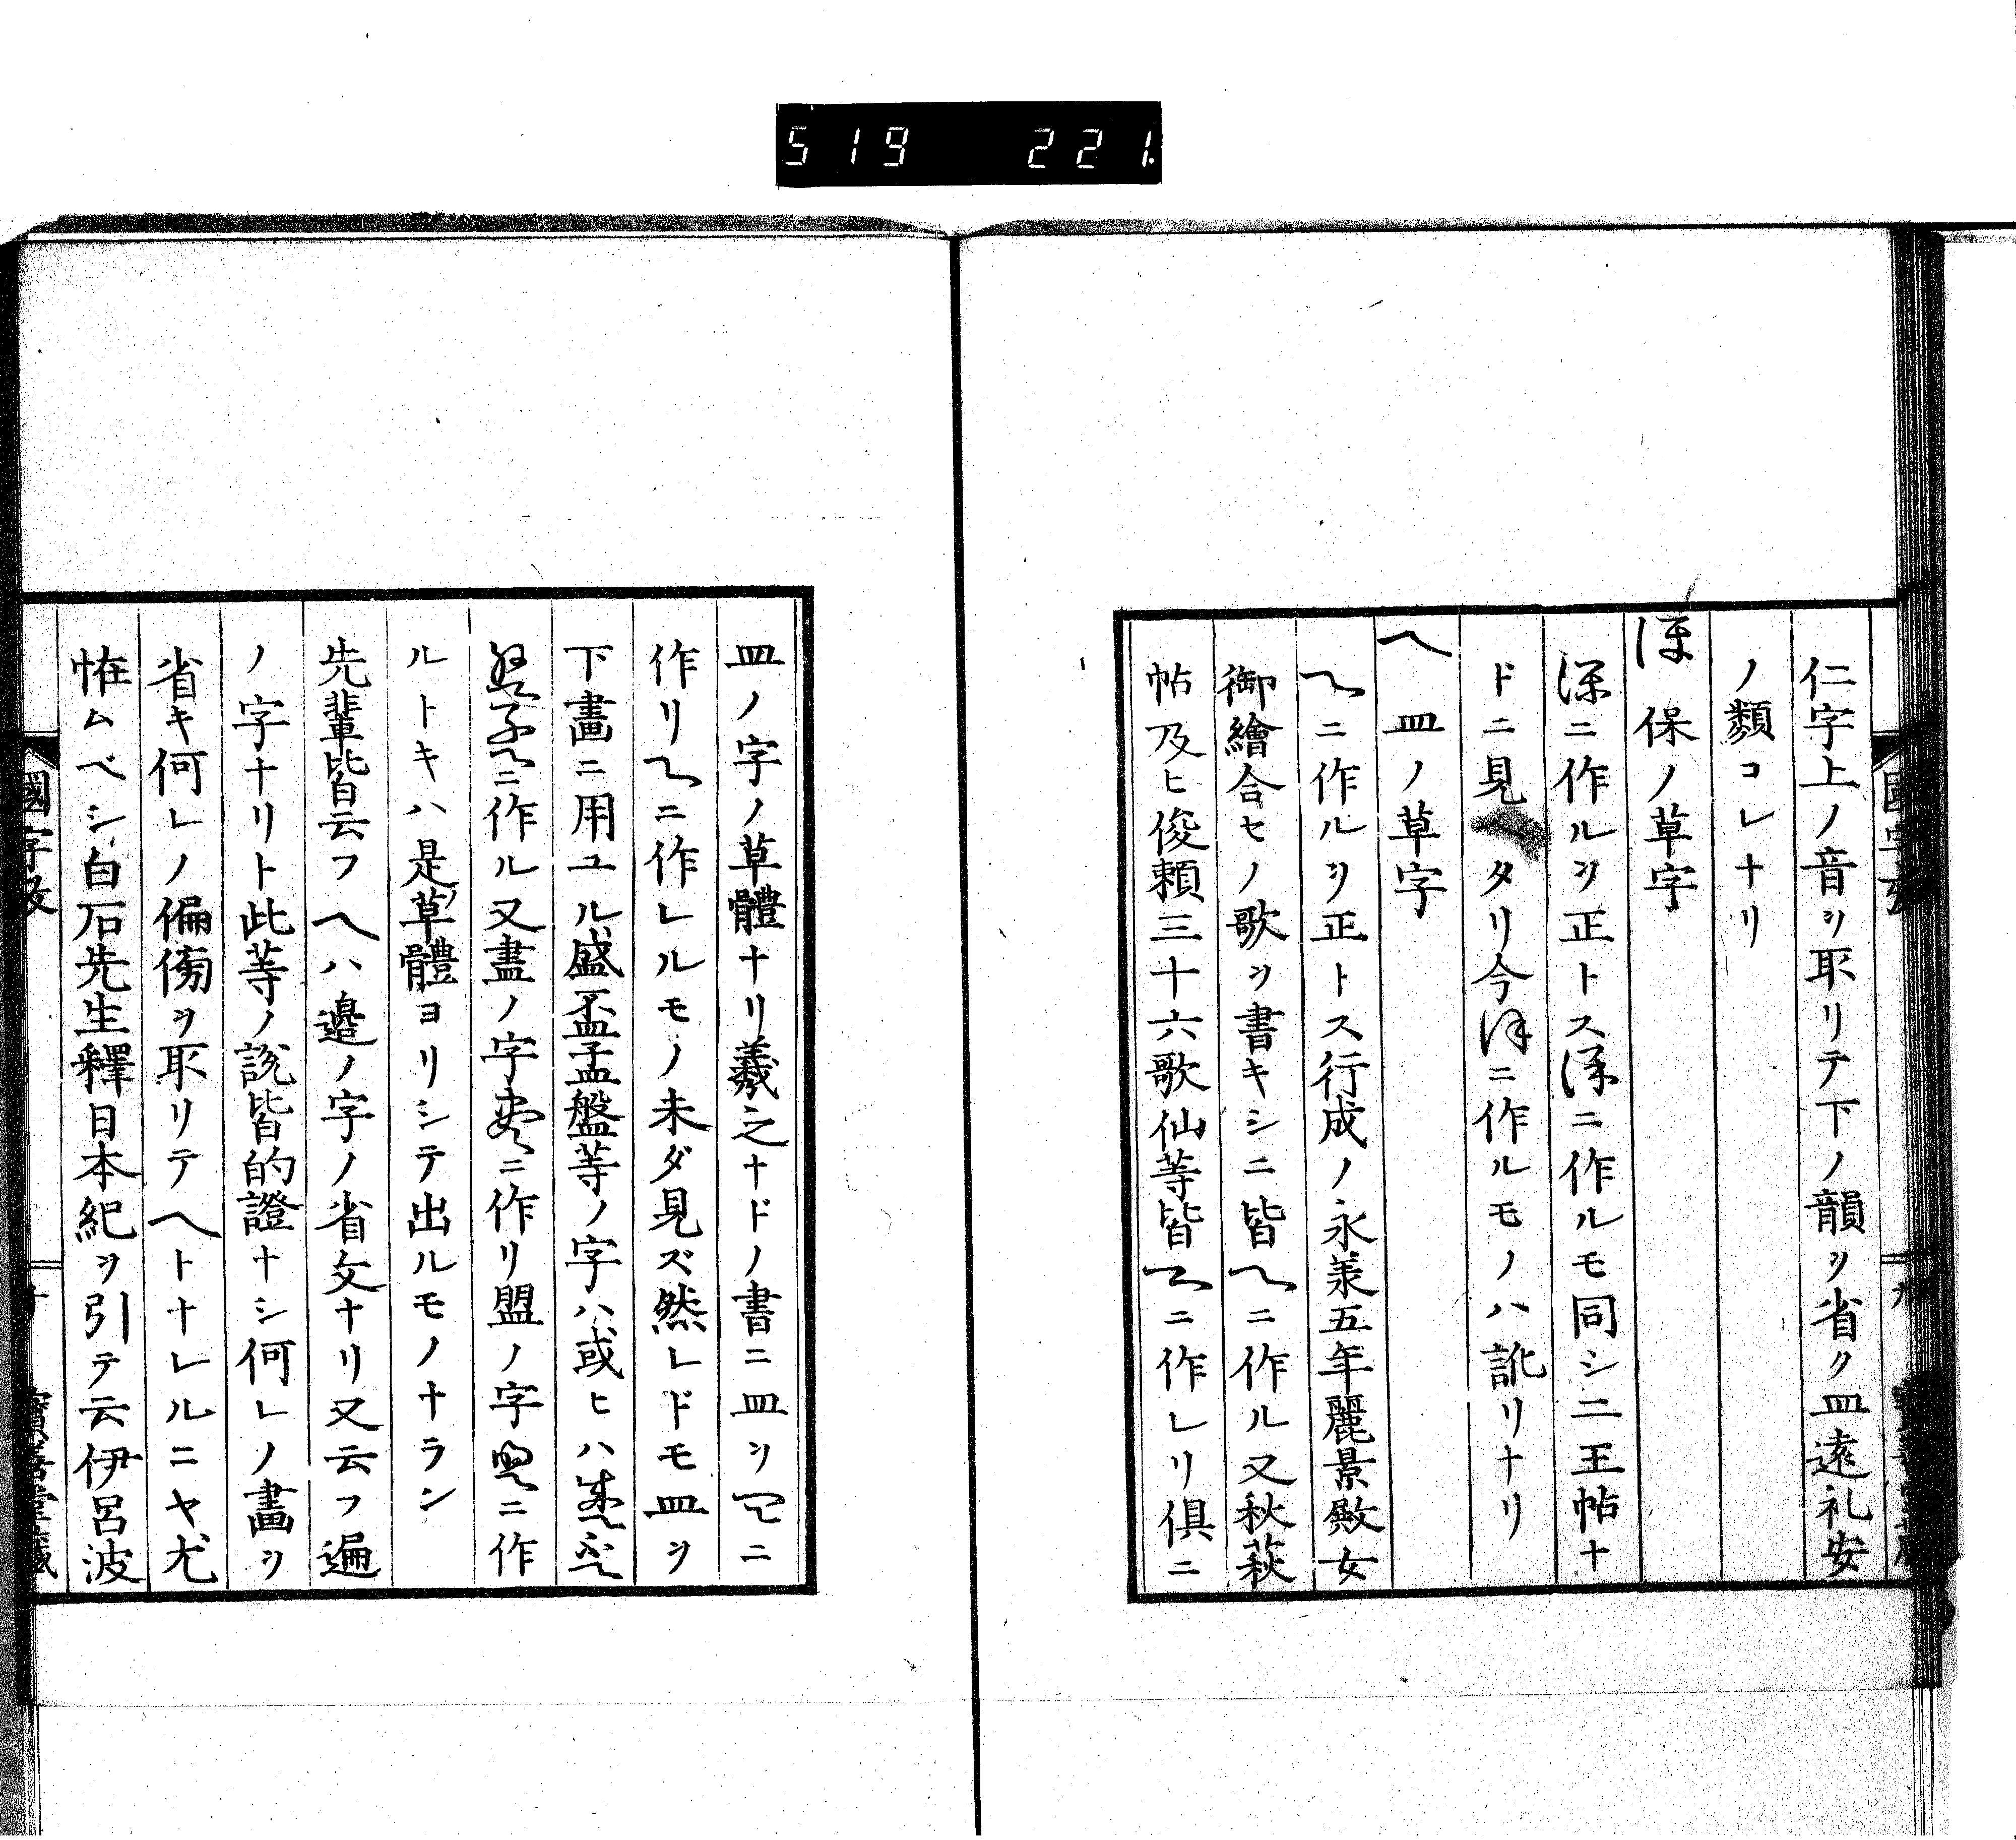 519 221.
仁字上ノ音ヲ取リテ下ノ韻ヲ省ク皿遠礼安
ノ類コレナリ
ほ 保ノ草字
ニ作ルヲ正トスニ作ルモ同シ二王帖ナ
ドニ見ヘタリ今ニ作ルモノハ訛リナリ
へ 皿ノ草字
ニ作ルヲ正トス行成ノ永承五年麗景殿女
御繪合セノ歌ヲ書キシニ皆ヘニ作ル又秋萩
帖及ヒ俊頼三十六歌仙等皆ニ作レリ俱ニ
皿ノ字ノ草體ナリ羲之ナドノ書ニ皿ヲニ
作リニ作レルモノ未ダ見ズ然レドモ皿ヲ
下畫ニ用ユル盛盃孟盤等ノ字ハ或ヒハ
ニ作ル又盡ノ字ニ作リ盟ノ字ニ作
ルトキハ是草體ヨリシテ出ルモノナラン
先輩皆云フヘハ邉ノ字ノ省文ナリ又云フ遍
ノ字ナリト此等ノ說皆的證ナシ何レノ畫ヲ
省キ何レノ偏傍ヲ取リテヘトナレルニヤ尤
恠ムベシ白石先生釋日本紀ヲ引テ云伊呂波
國字攷